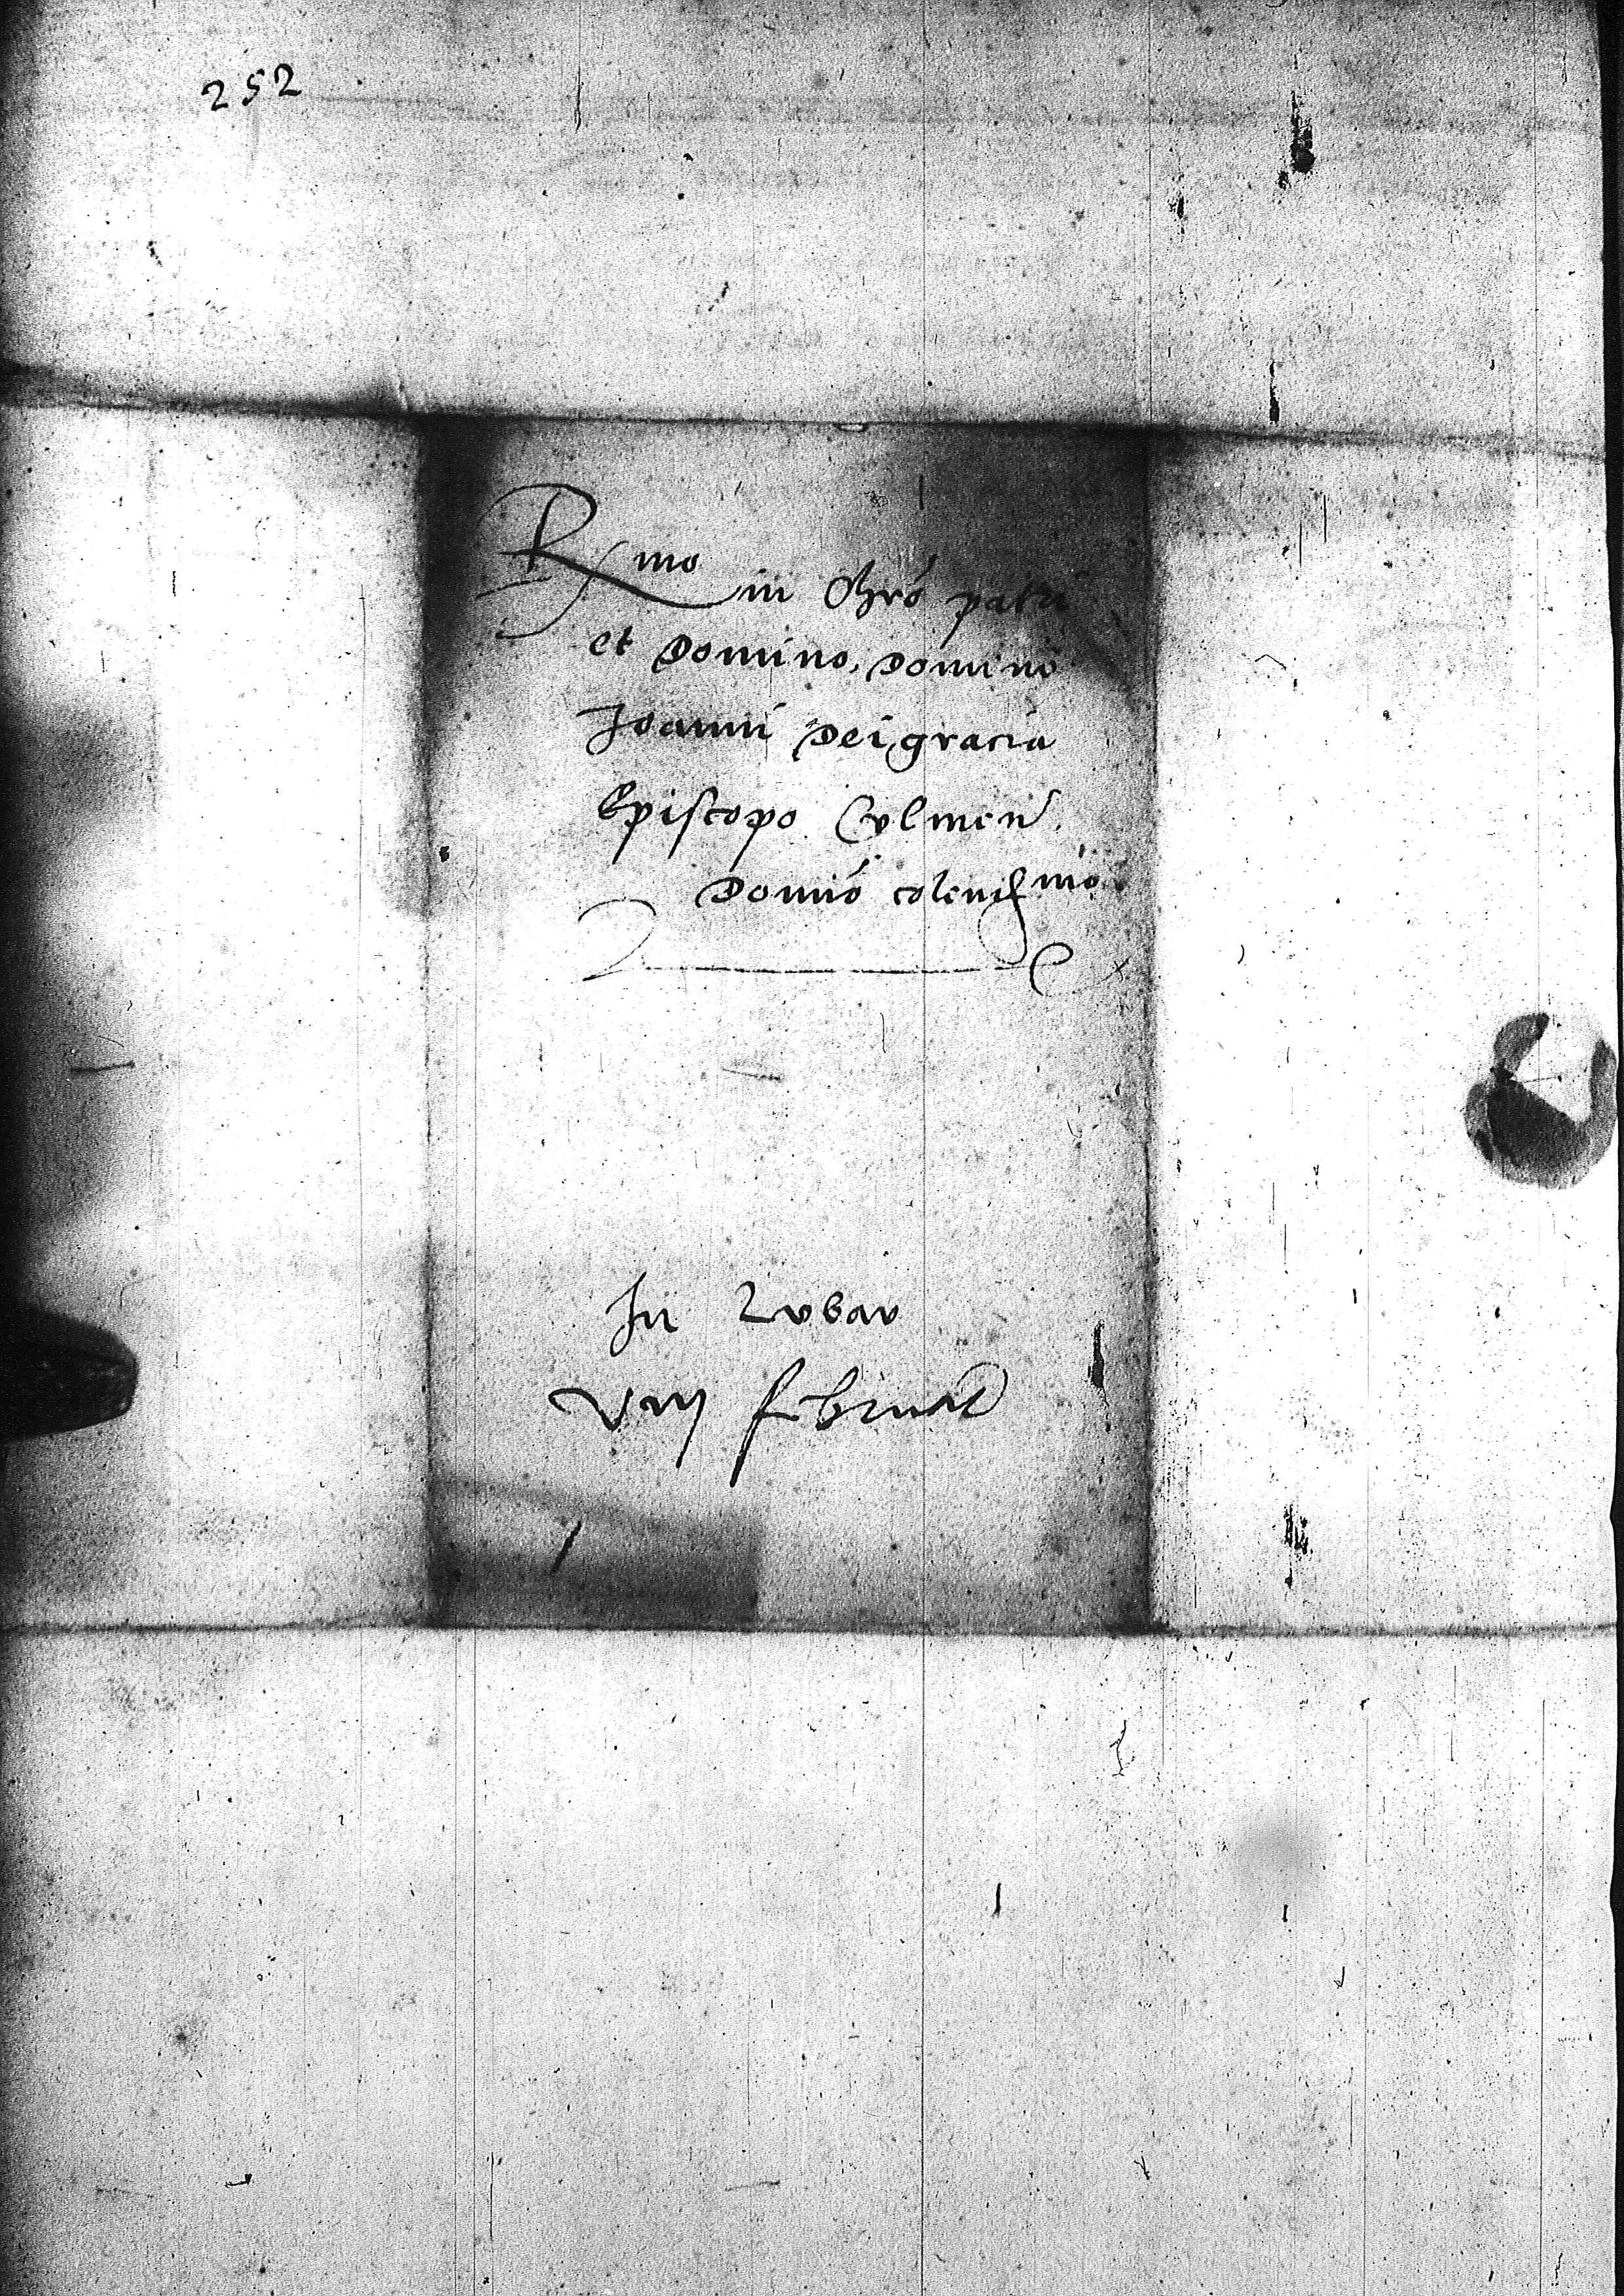 252
Rmo in Chro patri
et Domino, Domino
Joanni Dei gracia
Episcopo Culmen.
Domino colendissmo
In Lubav
VIII februar